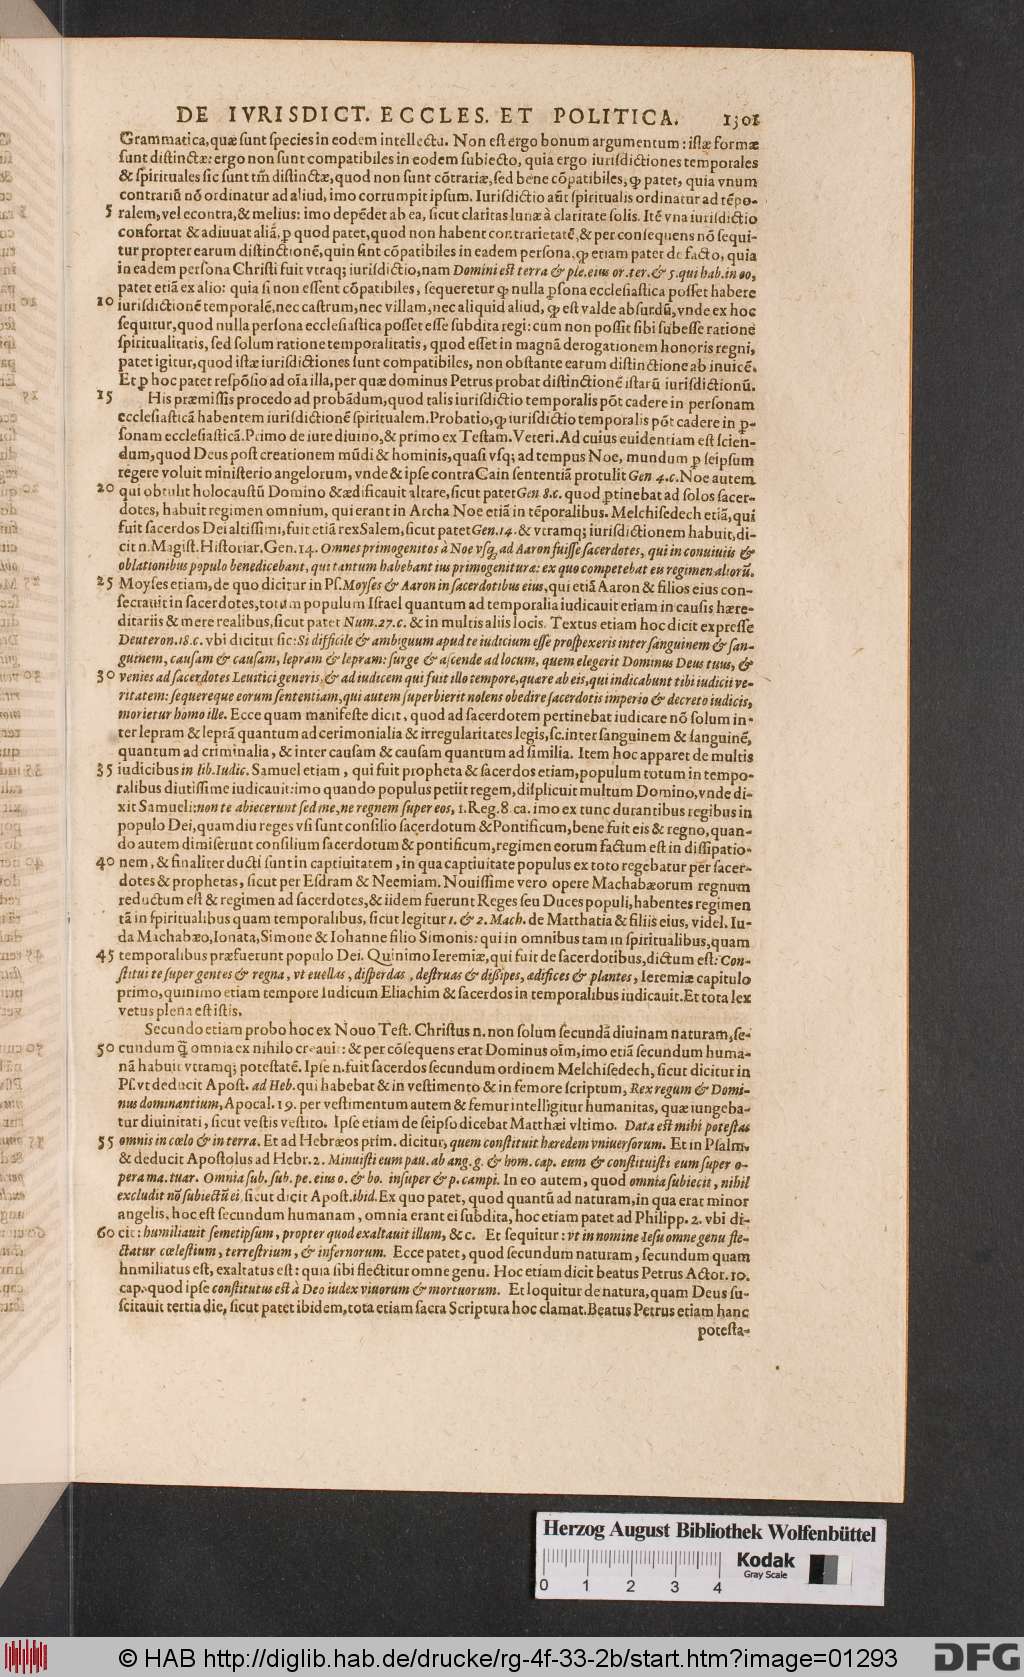 DE IVRISDICT. ECCLES. ET POLITICA. 1301
Grammatica, quæ sunt species in eodem intellectu. Non est ergo bonum argumentum: istæ formæ
sunt distinctæ: ergo non sunt compatibiles in eodem subiecto, quia ergo iurisdictiones temporales
& spirituales sic sunt tm̃ distinctæ, quod non sunt cõtrariæ, sed bene cõpatibiles, ꝙ patet, quia vnum
contrariũ nõ ordinatur ad aliud, imo corrumpit ipsum. Iurisdictio aũt spiritualis ordinatur ad tẽpo-
5 ralem, vel econtra, & melius: imo depẽdet ab ea, sicut claritas lunæ à claritate solis. Itẽ vna iurisdictio
confortat & adiuuat aliã, ꝑ quod patet, quod non habent contrarietatẽ, & per consequens nõ sequi-
tur propter earum distinctionẽ, quin sint cõpatibiles in eadem persona, ꝙ etiam patet de facto, quia
in eadem persona Christi fuit vtraq; iurisdictio, nam Domini est terra & ple. eius or. ter. & 5. qui hab. in eo,
patet etiã ex alio: quia si non essent cõpatibiles, sequeretur ꝙ nulla ꝑsona ecclesiastica posset habere
10 iurisdictionẽ temporalẽ, nec castrum, nec villam, nec aliquid aliud, ꝙ est valde absurdũ, vnde ex hoc
sequitur, quod nulla persona ecclesiastica posset esse subdita regi: cum non possit sibi subesse ratione
spiritualitatis, sed solum ratione temporalitatis, quod esset in magnã derogationem honoris regni,
patet igitur, quod istæ iurisdictiones sunt compatibiles, non obstante earum distinctione ab inuicẽ.
Et ꝑ hoc patet respõsio ad oĩa illa, per quæ dominus Petrus probat distinctionẽ istarũ iurisdictionũ.
15 His præmissis procedo ad probãdum, quod talis iurisdictio temporalis põt cadere in personam
ecclesiasticã habentem iurisdictionẽ spiritualem. Probatio, ꝙ iurisdictio temporalis põt cadere in ꝑ-
sonam ecclesiasticã. Primo de iure diuino, & primo ex Testam. Veteri. Ad cuius euidentiam est scien-
dum, quod Deus post creationem mũdi & hominis, quasi vsq; ad tempus Noe, mundum ꝑ seipsum
regere voluit ministerio angelorum, vnde & ipse contra Cain sententiã protulit Gen 4. c. Noe autem
20 qui obtulit holocaustũ Domino & ædificauit altare, sicut patet Gen 8. c. quod ꝑtinebat ad solos sacer-
dotes, habuit regimen omnium, qui erant in Archa Noe etiã in tẽporalibus. Melchisedech etiã, qui
fuit sacerdos Dei altissimi, fuit etiã rex Salem, sicut patet Gen. 14. & vtramq; iurisdictionem habuit, di-
cit n. Magist. Historiar. Gen. 14. Omnes primogenitos à Noe vsq; ad Aaron fuisse sacerdotes, qui in conuiuiis &
oblationibus populo benedicebant, qui tantum habebant ius primogenituræ: ex quo competebat eis regimen aliorũ.
25 Moyses etiam, de quo dicitur in Ps. Moyses & Aaron in sacerdotibus eius, qui etiã Aaron & filios eius con-
secrauit in sacerdotes, totum populum Israel quantum ad temporalia iudicauit etiam in causis hære-
ditariis & mere realibus, sicut patet Num. 27. c. & in multis aliis locis. Textus etiam hoc dicit expresse
Deuteron. 18. c. vbi dicitur sic: Si difficile & ambiguum apud te iudicium esse prospexeris inter sanguinem & san-
guinem, causam & causam, lepram & lepram: surge & ascende ad locum, quem elegerit Dominus Deus tuus, &
30 venies ad sacerdotes Leuitici generis, & ad iudicem qui fuit illo tempore, quære ab eis, qui indicabunt tibi iudicii ve-
ritatem: sequereque eorum sententiam, qui autem superbierit nolens obedire sacerdotis imperio & decreto iudicis,
morietur homo ille. Ecce quam manifeste dicit, quod ad sacerdotem pertinebat iudicare nõ solum in-
ter lepram & leprã quantum ad cerimonialia & irregularitates legis, sc. inter sanguinem & sanguinẽ,
quantum ad criminalia, & inter causam & causam quantum ad similia. Item hoc apparet de multis
35 iudicibus in lib. Iudic. Samuel etiam, qui fuit propheta & sacerdos etiam, populum totum in tempo-
ralibus diutissime iudicauit: imo quando populus petiit regem, displicuit multum Domino, vnde di-
xit Samueli: non te abiecerunt sed me, ne regnem super eos, 1. Reg. 8. ca. imo ex tunc durantibus regibus in
populo Dei, quam diu reges vsi sunt consilio sacerdotum & Pontificum, bene fuit eis & regno, quan-
do autem dimiserunt consilium sacerdotum & pontificum, regimen eorum factum est in dissipatio-
40 nem, & finaliter ducti sunt in captiuitatem, in qua captiuitate populus ex toto regebatur per sacer-
dotes & prophetas, sicut per Esdram & Neemiam. Nouissime vero opere Machabæorum regnum
reductum est & regimen ad sacerdotes, & iidem fuerunt Reges seu Duces populi, habentes regimen
tã in spiritualibus quam temporalibus, sicut legitur 1. & 2. Mach. de Matthatia & filiis eius, videl. Iu-
da Machabæo, Ionata, Simone & Iohanne filio Simonis: qui in omnibus tam in spiritualibus, quam
45 temporalibus præfuerunt populo Dei. Quinimo Ieremiæ, qui fuit de sacerdotibus, dictum est: Con-
stitui te super gentes & regna, vt euellas, disperdas, destruas & dissipes, ædifices & plantes, Ieremiæ capitulo
primo, quinimo etiam tempore Iudicum Eliachim & sacerdos in temporalibus iudicauit. Et tota lex
vetus plena est istis.
Secundo etiam probo hoc ex Nouo Test. Christus n. non solum secundã diuinam naturam, se-
50 cundum q̃ omnia ex nihilo creauit: & per cõsequens erat Dominus oĩm, imo etiã secundum huma-
nã habuit vtramq; potestatẽ. Ipse n. fuit sacerdos secundum ordinem Melchisedech, sicut dicitur in
Ps. vt deducit Apost. ad Heb. qui habebat & in vestimento & in femore scriptum, Rex regum & Domi-
nus dominantium, Apocal. 19. per vestimentum autem & femur intelligitur humanitas, quæ iungeba-
tur diuinitati, sicut vestis vestito. Ipse etiam de seipso dicebat Matthæi vltimo. Data est mihi potestas
55 omnis in cœlo & in terra. Et ad Hebræos prim. dicitur, quem constituit hæredem vniuersorum. Et in Psalm.
& deducit Apostolus ad Hebr. 2. Minuisti eum pau. ab ang. g. & hon. cap. eum & constituisti eum super o-
pera ma. tuar. Omnia sub. sub. pe. eius o. & bo. insuper & p. campi. In eo autem, quod omnia subiecit, nihil
excludit nõ subiectũ ei, sicut dicit Apost. ibid. Ex quo patet, quod quantũ ad naturam, in qua erat minor
angelis, hoc est secundum humanam, omnia erant ei subdita, hoc etiam patet ad Philipp. 2. vbi di-
60 cit: humiliauit semetipsum, propter quod exaltauit illum, &c. Et sequitur: vt in nomine Iesu omne genu fle-
ctatur cœlestium, terrestrium, & infernorum. Ecce patet, quod secundum naturam, secundum quam
humiliatus est, exaltatus est: quia sibi flectitur omne genu. Hoc etiam dicit beatus Petrus Actor. 10.
cap. quod ipse constitutus est à Deo iudex viuorum & mortuorum. Et loquitur de natura, quam Deus su-
scitauit tertia die, sicut patet ibidem, tota etiam sacra Scriptura hoc clamat. Beatus Petrus etiam hanc
potesta-
Herzog August Bibliothek Wolfenbüttel
0 1 2 3 4
Kodak
Gray Scale
© HAB http://diglib.hab.de/drucke/rg-4f-33-2b/start.htm?image=01293
DFG